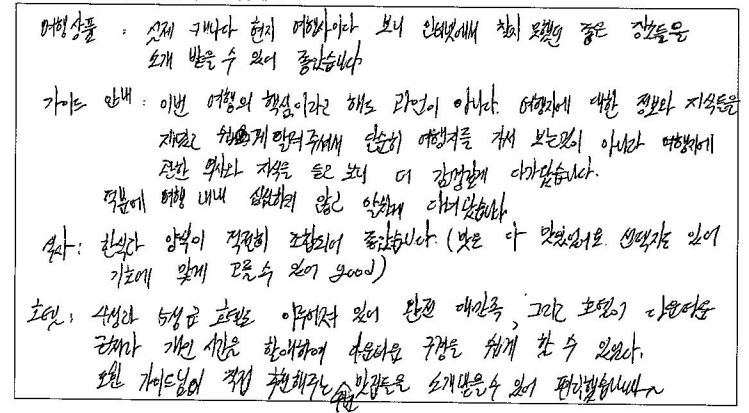 여행상품 : 실제 캐나다 현지 여행사이다 보니 인터넷에서 찾지 못했던 좋은 장소들을
소개 받을 수 있어 좋았습니다
가이드 안내 : 이번 여행의 핵심이라고 해도 과언이 아니다. 여행지에 대한 정보와 지식들을
재밌고 쉽게 알려주셔서 단순히 여행지를 가서 보는것이 아니라 여행지에
관한 역사와 지식을 듣고 보니 더 감명깊게 다가왔습니다.
덕분에 여행 내내 심심하지 않고 알차게 다녀왔습니다
식사 : 한식과 양식이 적절히 조합되어 좋았습니다. (맛은 다 맛있었어요. 선택지도 있어
기호에 맞게 고를 수 있어 good)
호텔 : 4성과 5성급 호텔로 이루어져 있어 완전 대만족, 그리고 호텔이 다운타운
근처라 개인 시간을 할애하여 다운타운 구경을 쉽게 할 수 있었다.
또한 가이드님이 직접 추천해주는 맛집들을 소개받을 수 있어 편리했습니다~